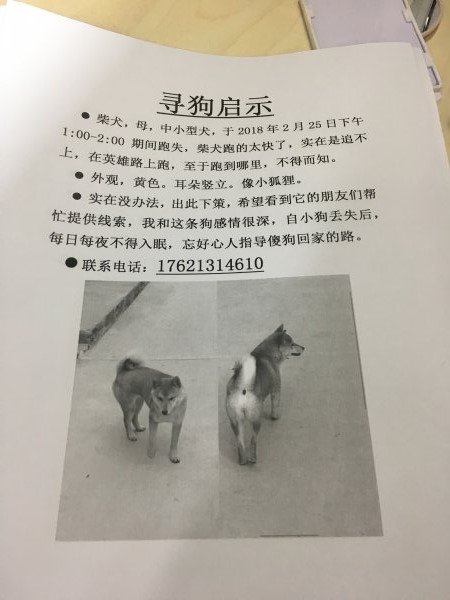 寻狗启示
● 柴犬，母，中小型犬，于 2018 年 2 月 25 日下午
1:00-2:00 期间跑失，柴犬跑的太快了，实在是追不
上，在英雄路上跑，至于跑到哪里，不得而知。
● 外观，黄色。耳朵竖立。像小狐狸。
● 实在没办法，出此下策，希望看到它的朋友们帮
忙提供线索，我和这条狗感情很深，自小狗丢失后，
每日每夜不得入眠，忘好心人指导傻狗回家的路。
● 联系电话：17621314610